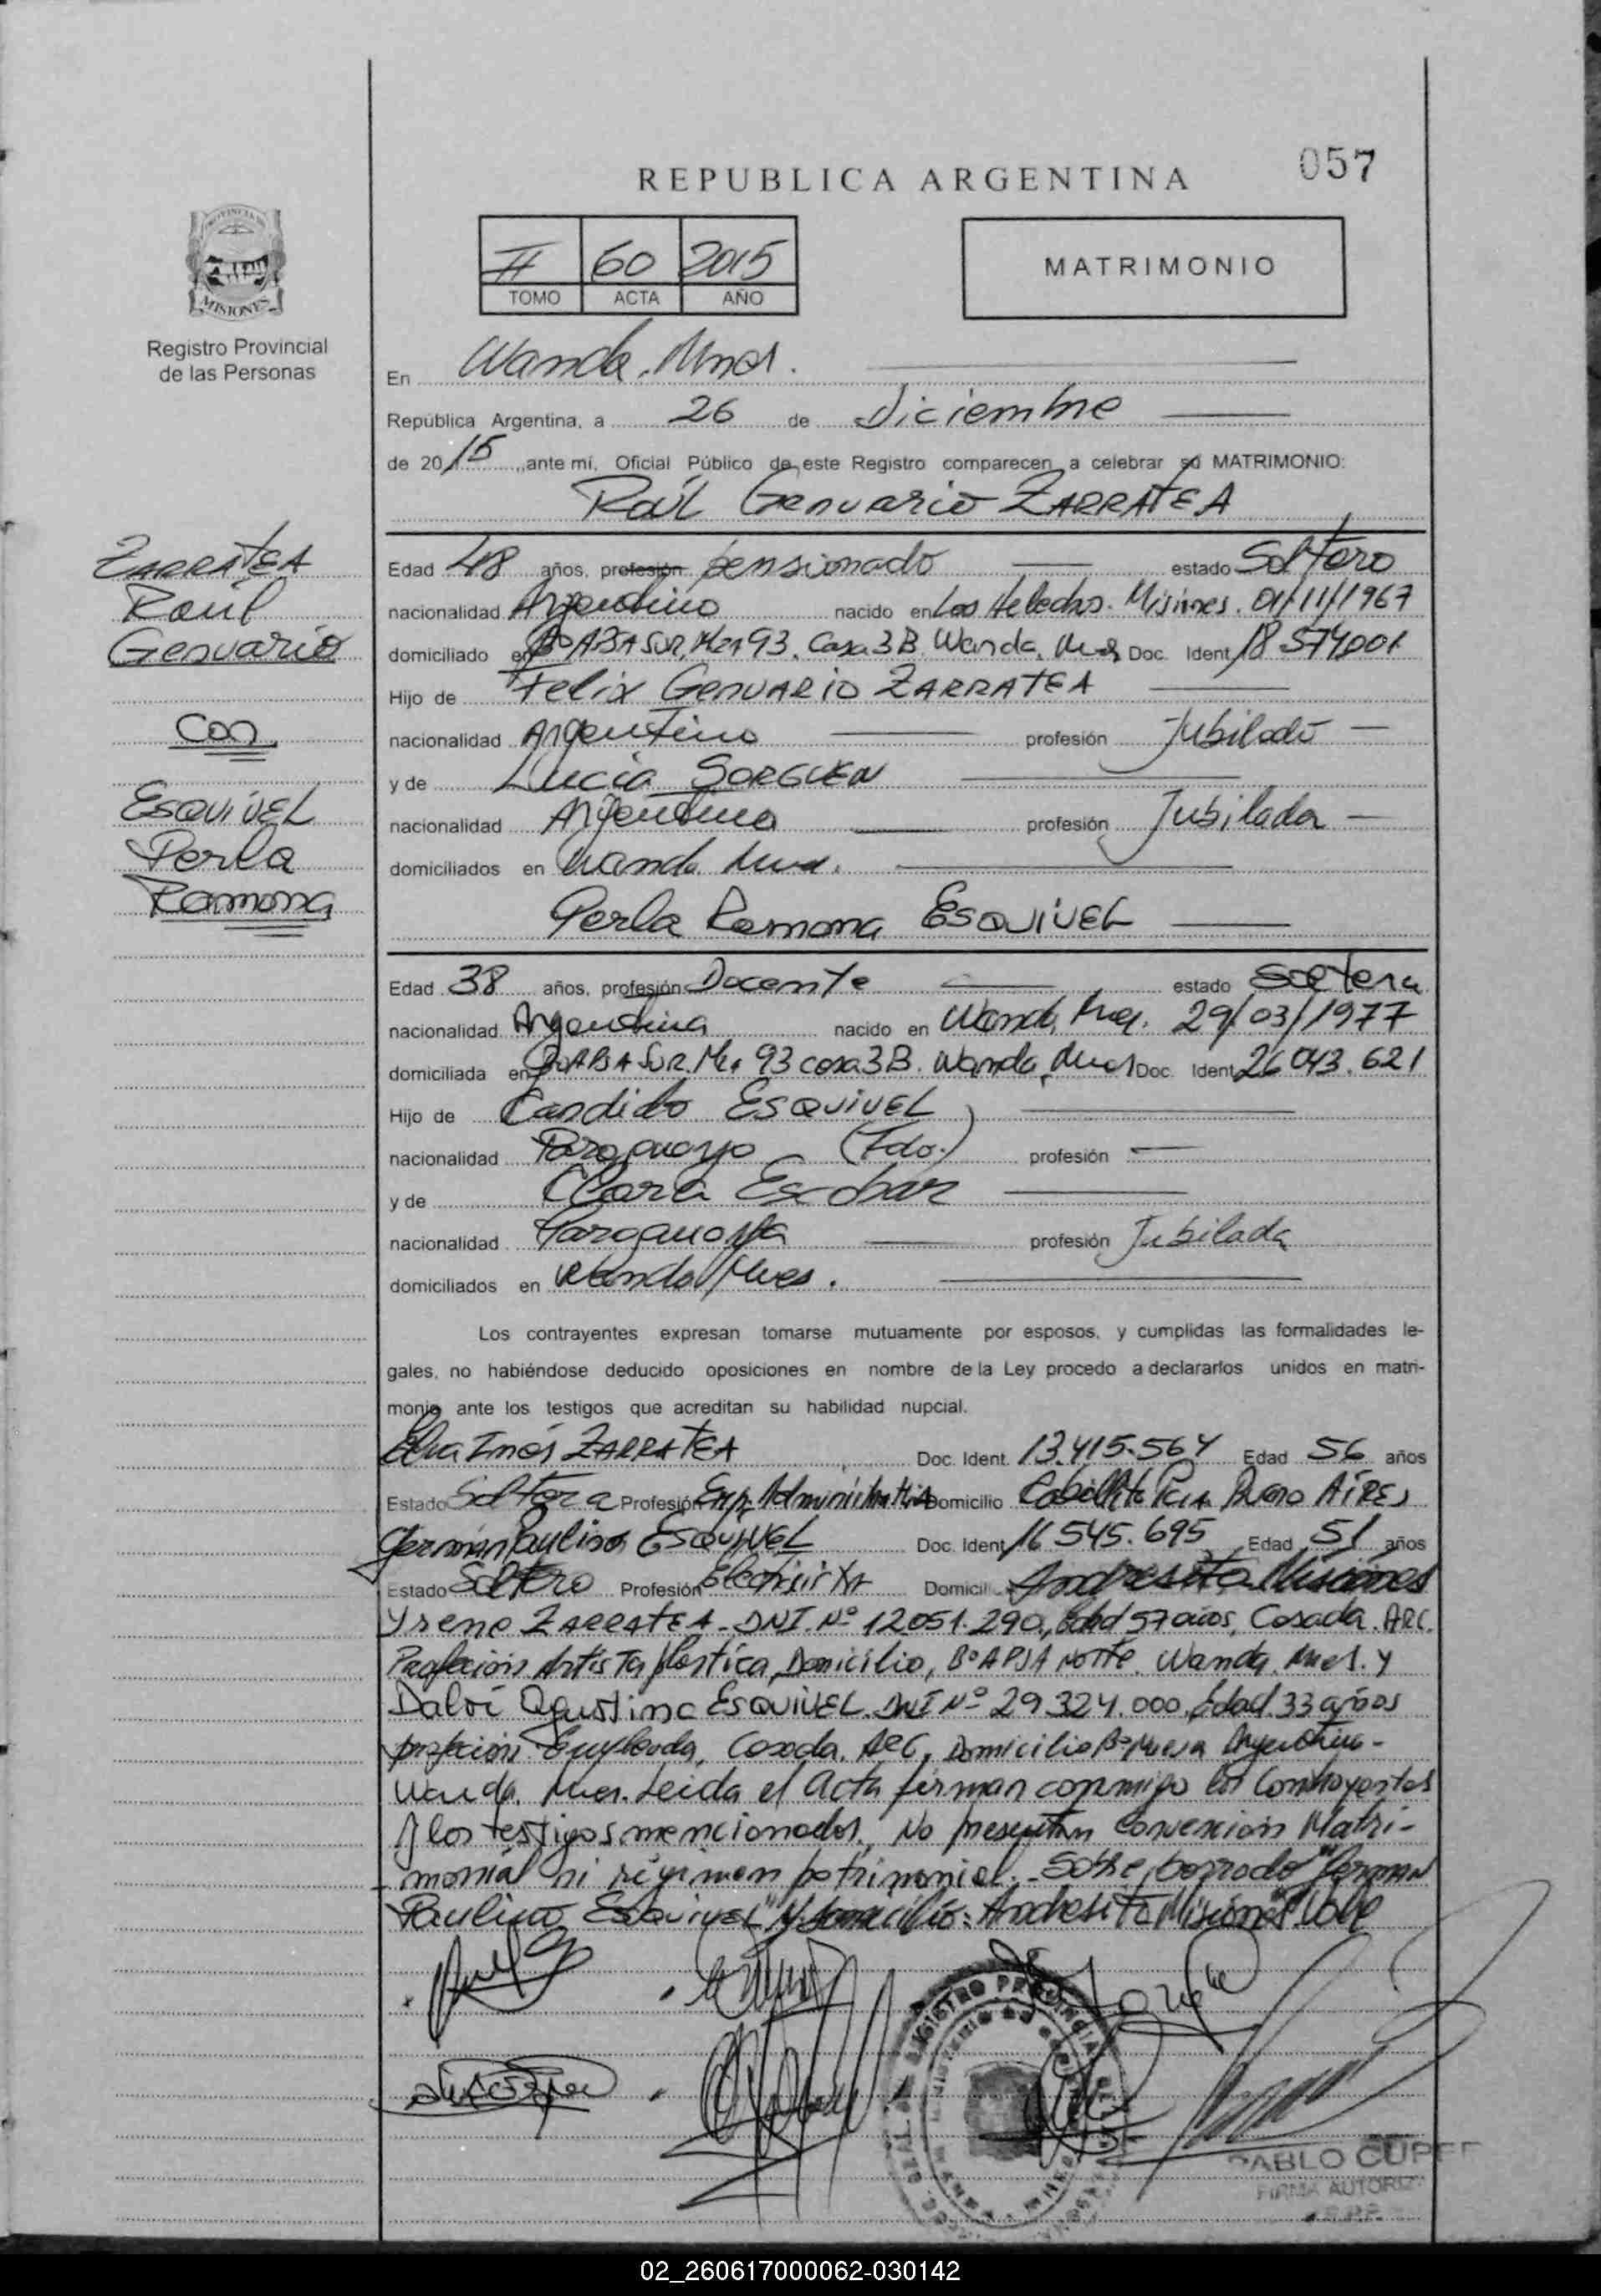 057
REPUBLICA ARGENTINA
II 60 2015
TOMO ACTA AÑO
MATRIMONIO
MISIONES
Registro Provincial
de las Personas
En Wanda, Mnes.
República Argentina, a 26 de Diciembre
de 2015, ante mí, Oficial Público de este Registro comparecen a celebrar su MATRIMONIO:
Raúl Genuario ZARRATEA
ZARRATEA
Raúl
Genuario
Con
ESQUIVEL
Perla
Ramona
Edad 48 años, profesión pensionado estado Soltero
nacionalidad Argentino nacido en Los Helechos. Misiones. 01/11/1967
domiciliado en Bº A3A SUR, Mzn 93. Casa 3B. Wanda, Mnes Doc. Ident. 18.574.001
Hijo de Felix GENUARIO ZARRATEA
nacionalidad Argentino profesión Jubilado
y de Lucia SORGUEN
nacionalidad Argentina profesión Jubilada
domiciliados en Wanda Mnes.
Perla Ramona ESQUIVEL
Edad 38 años, profesión Docente estado Soltera
nacionalidad Argentina nacido en Wanda, Mnes. 29/03/1977
domiciliada en SUR. Mz. 93 casa 3B. Wanda, Mnes Doc. Ident. 26.043.621
Hijo de Candido ESQUIVEL
nacionalidad Paraguayo (Fdo.) profesión —
y de Clara Escobar
nacionalidad Paraguaya profesión Jubilada
domiciliados en Wanda Mnes.
Los contrayentes expresan tomarse mutuamente por esposos, y cumplidas las formalidades le-
gales, no habiéndose deducido oposiciones en nombre de la Ley procedo a declararlos unidos en matri-
monio ante los testigos que acreditan su habilidad nupcial.
Inés ZARRATEA Doc. Ident. 13.415.564 Edad 56 años
Estado Soltera Profesión Emp. Administrativa Domicilio Pcia Bueno AIRES
German Paulino ESQUIVEL Doc. Ident. 16.545.695 Edad 51 años
Estado Soltero Profesión Electricista Domicilio Andresito Misiones
Yrene ZARRATEA - DNI. Nº 12.051.290, Edad 57 años, Casada. ARG.
Profecion Artista plastica, Domicilio, Bº Norte. Wanda. Mnes. y
Agustina ESQUIVEL. DNI Nº 29.324.000, Edad. 33 años
profecion Empleada, Casada. ARG, Domicilio Bº Nueva Argentina -
Wanda. Mnes. Leida el Acta firman conmigo los Contrayentes
y los testigos mencionados. No presentan Convención Matri-
monial ni régimen patrimonial. - Sobre borrado "German
Paulino ESQUIVEL" y domicilio: Andresito Misiones" Vale
PABLO CUPE
FIRMA AUTORIZ
02_260617000062-030142